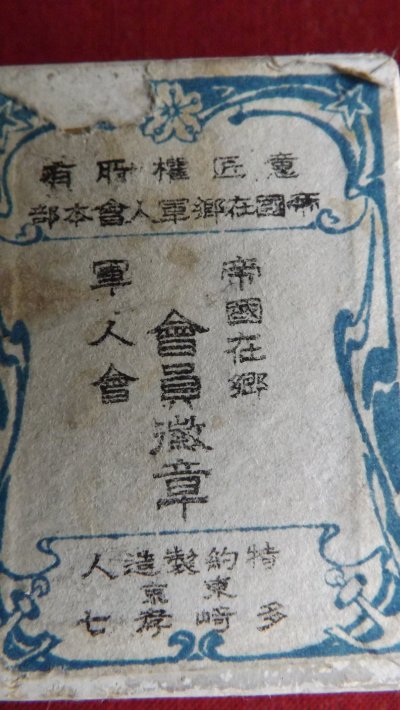 意匠權所有
帝國在鄉軍人會本部
帝國在鄉
軍人會
會員徽章
特約製造人
東京
多崎孝七